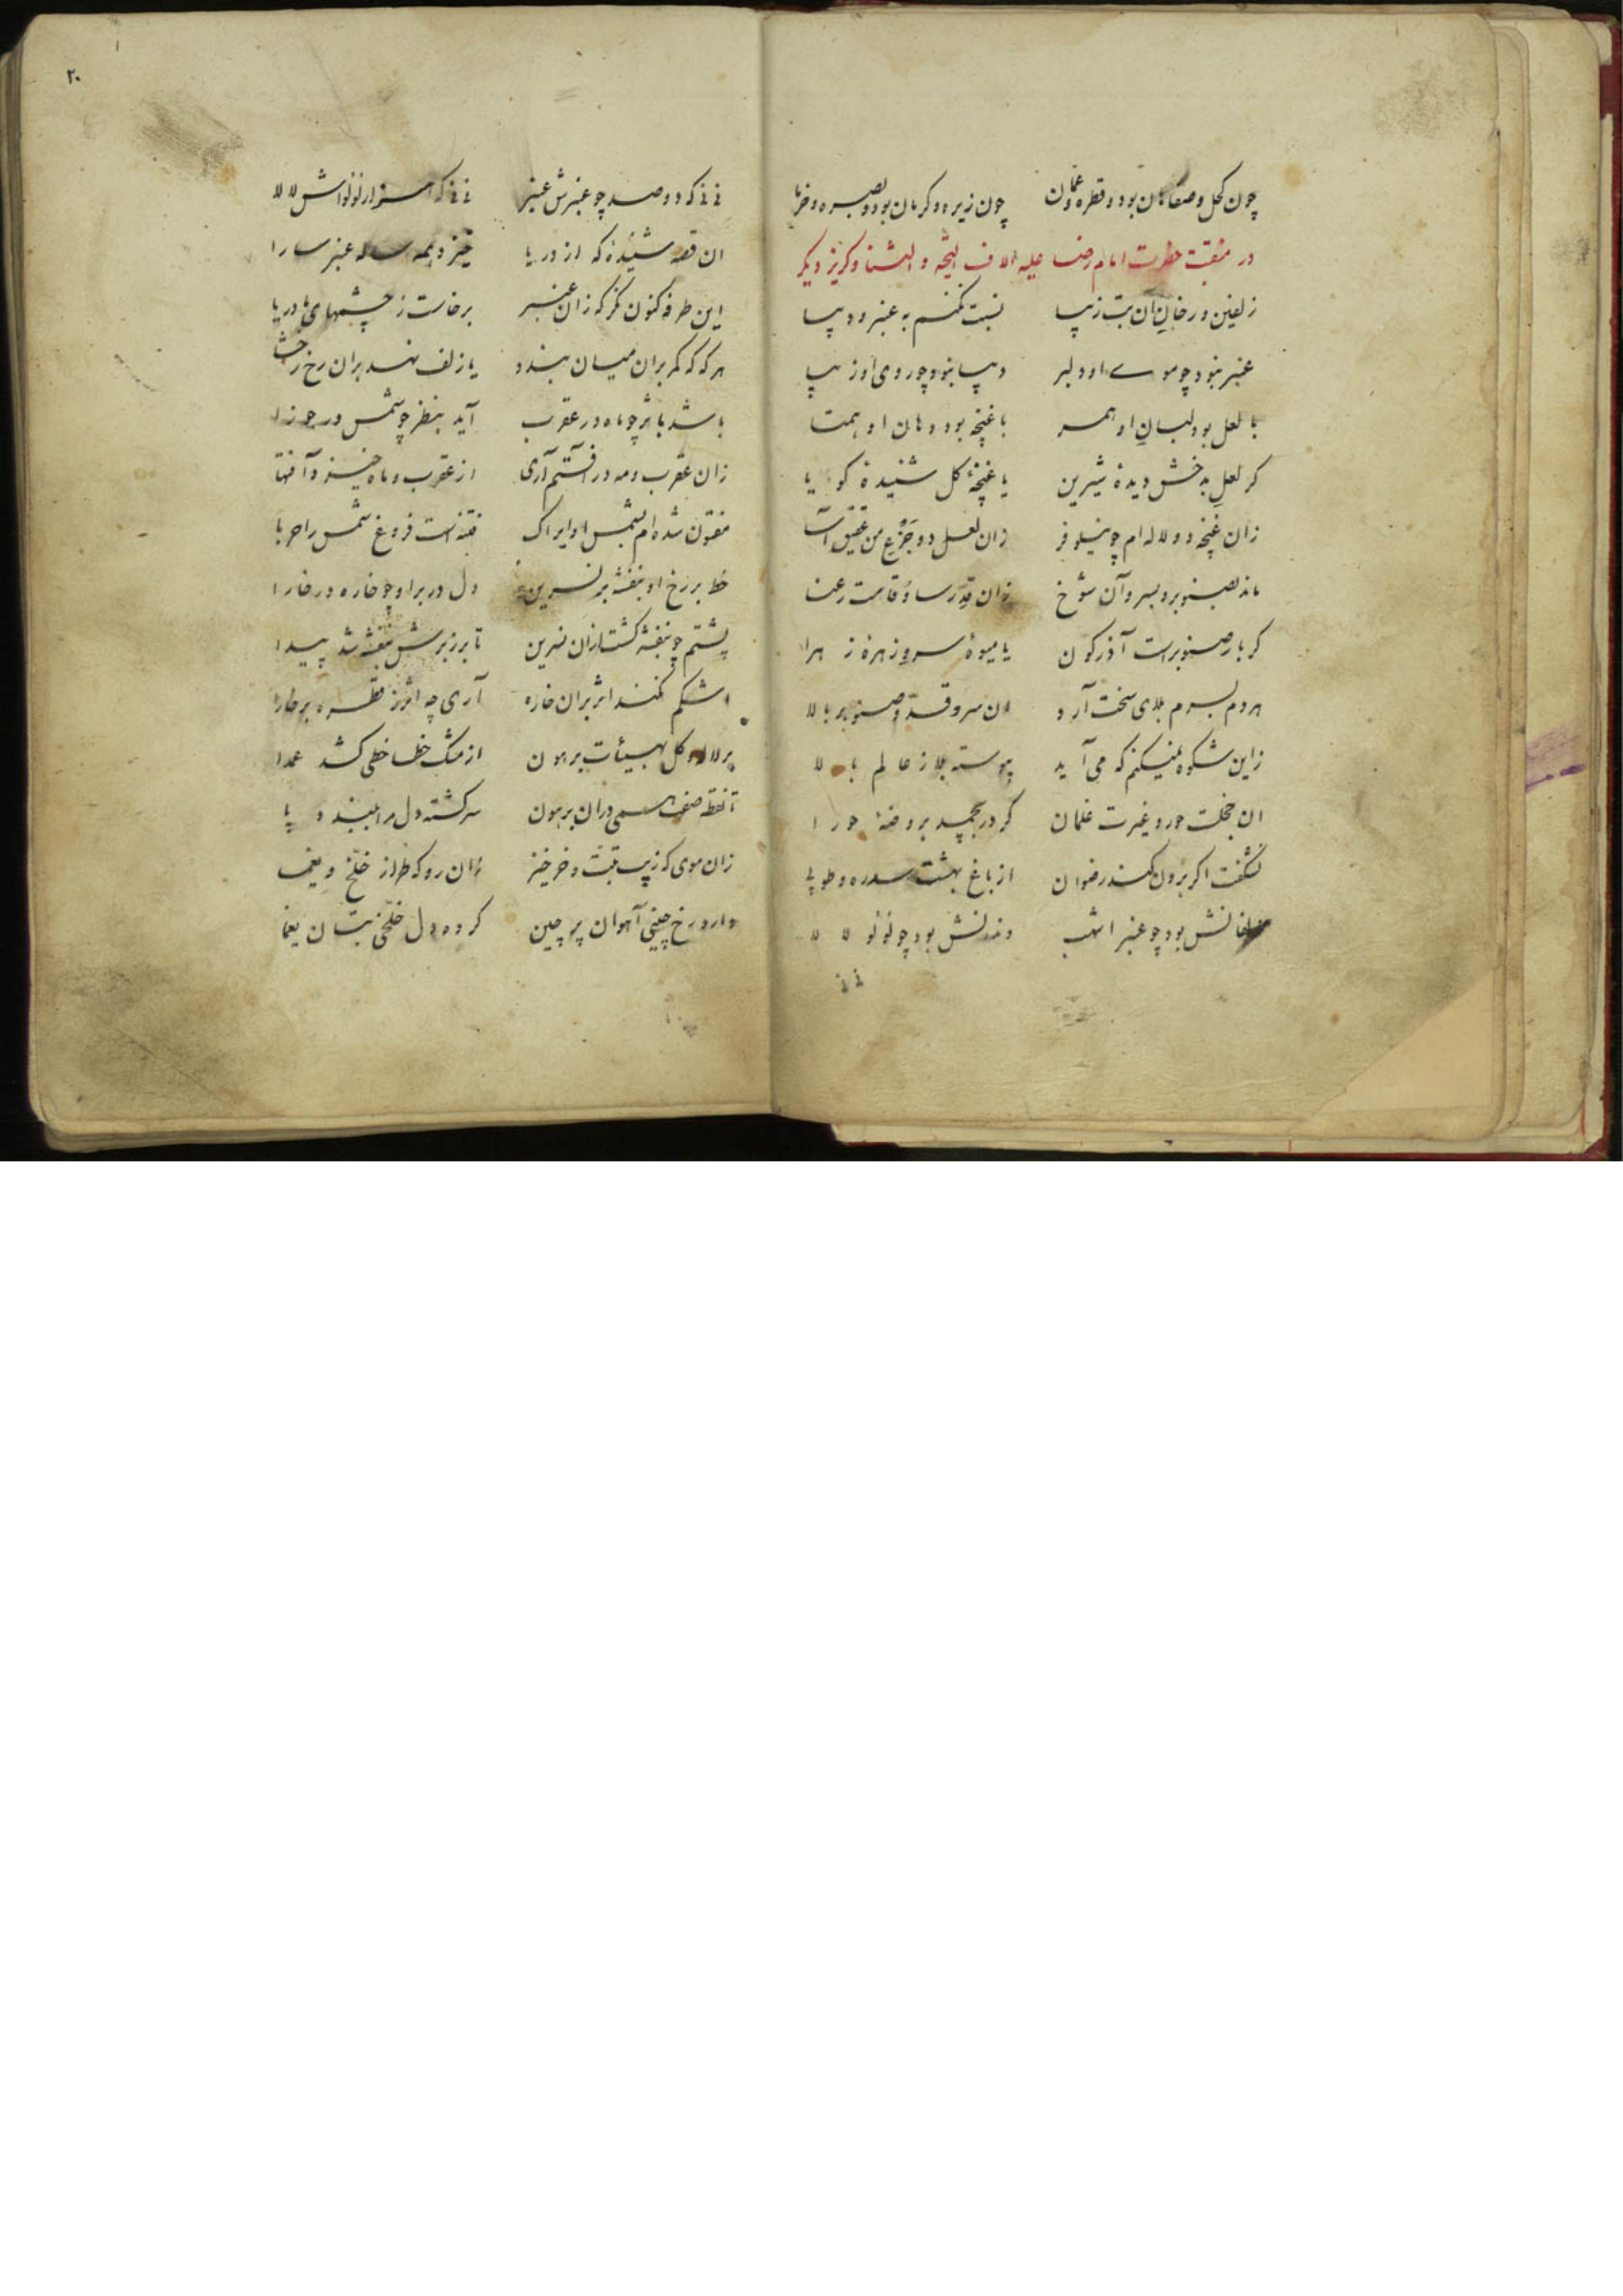 چون کحل و صفاهان بود و قطره و عمان چون زیره و کرمان بود و بصره و خرما
در منقبت حضرت امام رضا علیه الاف التحیه و الثنا و کریز دیکر
زلفین و رخان ان بت زیبا نسبت نکنم به عنبر و دیبا
عنبر نبود چو موی او دلبر دیبا نبود چو روی او زیبا
با لعل بود لبان او همسر با غنچه بود دهان او همتا
کر لعل بدخش دیدهٔ شیرین یا غنچهٔ کل شنیدهٔ کویا
زان غنچه دو لاله ام چو نیلوفر زان لعل دو جزع من عقیق آسا
ماند بصنوبر و بسرو آن شوخ زان قد رسا و قامت رعنا
کر بار صنوبر است آذرکون یا میوهٔ سرو زهرهٔ زهرا
هر دم بسرم بلای سخت آرد ان سرو قد و صنوبر بالا
زاین شکوه نمیکنم که می آید پیوسته بلا ز عالم بالا
ان خجلت حور و غیرت غلمان کر در بچمد بروضهٔ حورا
نشکفت اکر برون کند رضوان از باغ بهشت سدره و طوبی
زلفانش بود چو عنبر اشهب دندانش بود چو لؤلؤ لالا
نی نی
۲۰
نی نی که دو صد چو عنبرش عنبر نی نی که هزار لؤلؤاش لالا
ان قصه شنیدهٔ که از دریا خیزد همه ساله عنبر سارا
این طرفه کنون نکر که زان عنبر برخاست ز چشمهای ما دریا
هر که که کمر بران میان بندد یا زلف نهد بران رخ رخشا
باشد باثر چو ماه در عقرب آید بنظر چو شمس در جوزا
زان عقرب و مه در آفتم آری از عقرب و ماه خیزد آفتها
مفتون شده ام بشمس او ایراک فتنه است فروغ شمس را حربا
خط بر رخ او بنفشه بر نسرین دل در بر او چو خاره در خارا
پشتم چو بنفشه کشت زان نسرین تا بر زبرش بنفشه شد پیدا
اشکم نکند اثر بران خاره آری چه اثر ز قطره بر خارا
بر لاله و کل بهیئات برهون از مشک خطا خطی کشد عمدا
تا نقطه صفت همی دران برهون سرکشته دل مرا ببندد پا
زان موی که زیب تبت و خرخیز زان رو که طراز خلخ و یغما
دارد رخ چینی آهوان پر چین کرده دل خلخی بتان یغما